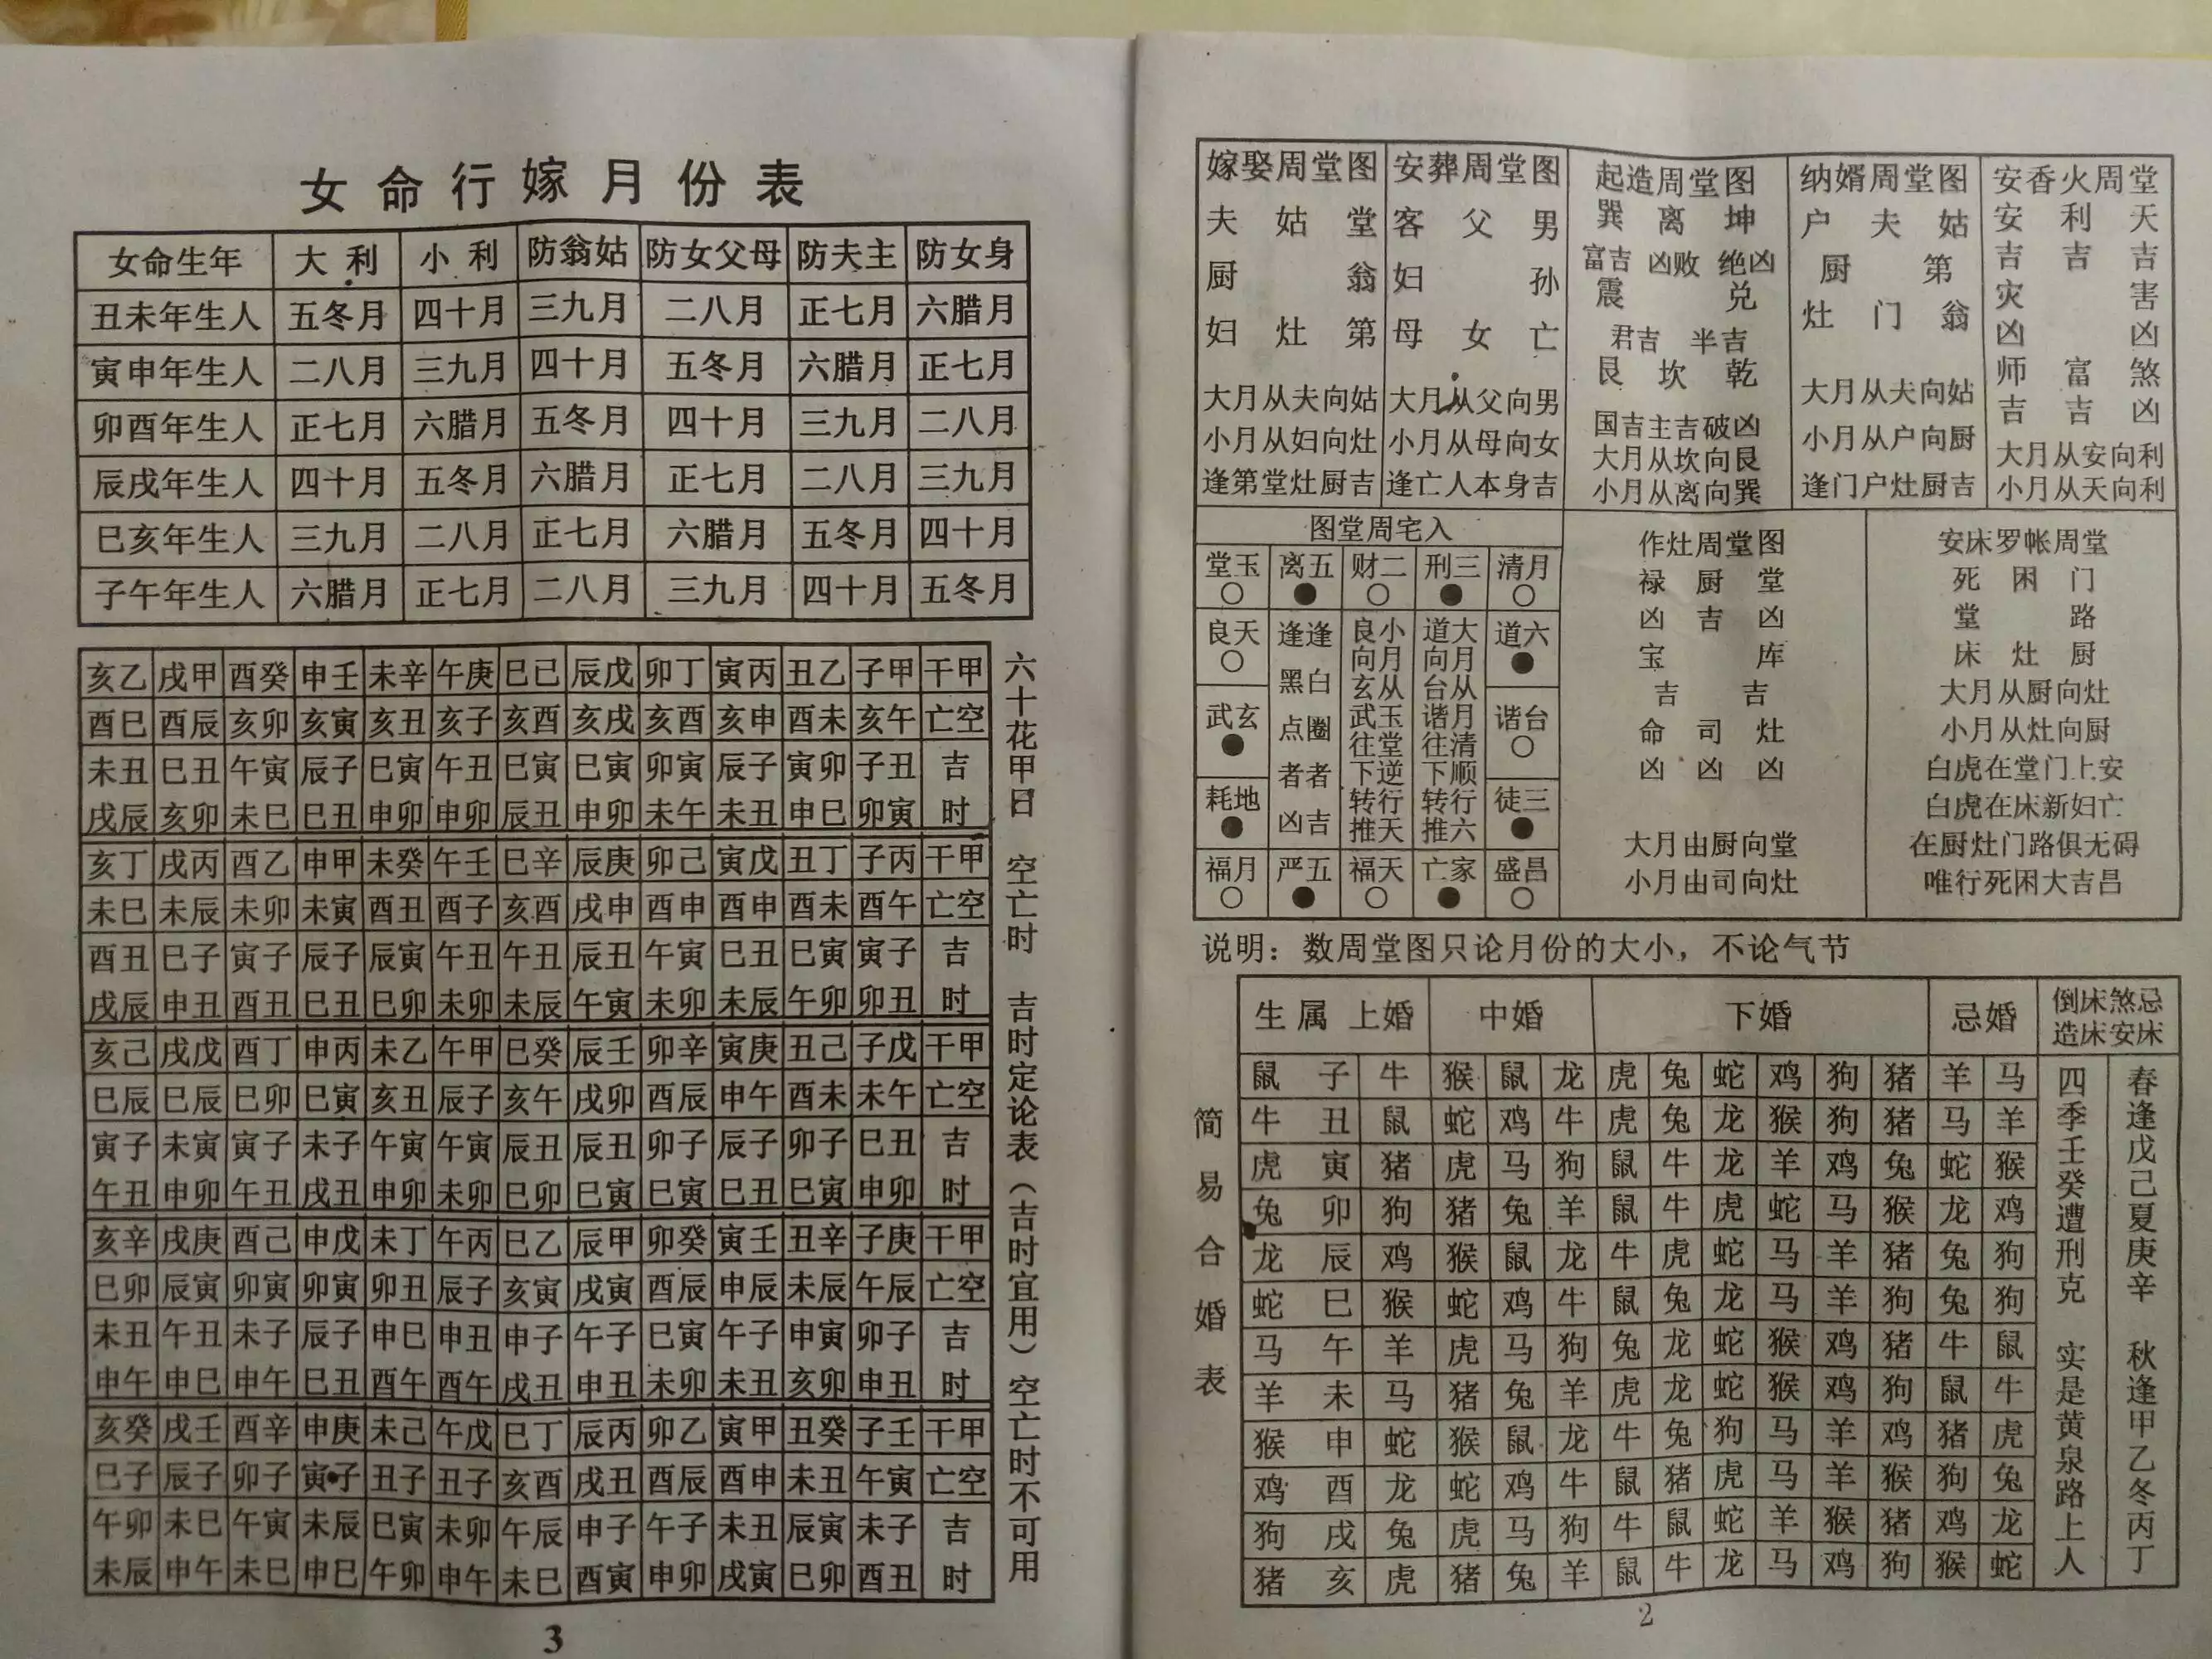 女命行嫁月份表
女命生年 大利 小利 防翁姑 防女父母 防夫主 防女身
丑未年生人 五冬月 四十月 三九月 二八月 正七月 六腊月
寅申年生人 二八月 三九月 四十月 五冬月 六腊月 正七月
卯酉年生人 正七月 六腊月 五冬月 四十月 三九月 二八月
辰戌年生人 四十月 五冬月 六腊月 正七月 二八月 三九月
巳亥年生人 三九月 二八月 正七月 六腊月 五冬月 四十月
子午年生人 六腊月 正七月 二八月 三九月 四十月 五冬月
亥乙 戌甲 酉癸 申壬 未辛 午庚 巳己 辰戊 卯丁 寅丙 丑乙 子甲 干甲
酉巳 酉辰 亥卯 亥寅 亥丑 亥子 亥酉 亥戌 亥酉 亥申 酉未 亥午 亡空
未丑 巳丑 午寅 辰子 巳寅 午丑 巳寅 巳寅 卯寅 辰子 寅卯 子丑 吉
戌辰 亥卯 未巳 巳丑 申卯 申卯 辰丑 申卯 未午 未丑 申巳 卯寅 时
亥丁 戌丙 酉乙 申甲 未癸 午壬 巳辛 辰庚 卯己 寅戊 丑丁 子丙 干甲
未巳 未辰 未卯 未寅 酉丑 酉子 亥酉 戌申 酉申 酉申 酉未 酉午 亡空
酉丑 巳子 寅子 辰子 辰寅 午丑 午丑 辰丑 午寅 巳丑 巳寅 寅子 吉
戌辰 申丑 酉丑 巳丑 巳卯 未卯 未辰 午寅 未卯 未辰 午卯 卯丑 时
亥己 戌戊 酉丁 申丙 未乙 午甲 巳癸 辰壬 卯辛 寅庚 丑己 子戊 干甲
巳辰 巳辰 巳卯 巳寅 亥丑 辰子 亥午 戌卯 酉辰 申午 酉未 未午 亡空
寅子 未寅 寅子 未子 午寅 午寅 辰丑 辰丑 卯子 辰子 卯子 巳丑 吉
午丑 申卯 午丑 戌丑 申卯 未卯 巳卯 巳寅 巳寅 巳丑 巳寅 申卯 时
亥辛 戌庚 酉己 申戊 未丁 午丙 巳乙 辰甲 卯癸 寅壬 丑辛 子庚 干甲
巳卯 辰寅 卯寅 卯寅 卯丑 辰子 亥寅 戌寅 酉辰 申辰 未辰 午辰 亡空
未丑 午丑 未子 辰子 申巳 申丑 申子 午子 巳寅 午子 申寅 卯子 吉
申午 申巳 申午 巳丑 酉午 酉午 戌丑 申丑 未卯 未丑 亥卯 申丑 时
亥癸 戌壬 酉辛 申庚 未己 午戊 巳丁 辰丙 卯乙 寅甲 丑癸 子壬 干甲
巳子 辰子 卯子 寅子 丑子 丑子 亥酉 戌丑 酉辰 酉申 未丑 午寅 亡空
午卯 未巳 午寅 未辰 巳寅 未卯 午辰 申子 午子 未丑 辰寅 未子 吉
未辰 申午 未巳 申巳 午卯 申午 未巳 酉寅 申卯 戌寅 巳卯 酉丑 时
六十花甲日 空亡时 吉时定论表（吉时宜用）空亡时不可用
3
嫁娶周堂图
夫 姑 堂
厨 翁
妇 灶 第
大月从夫向姑
小月从妇向灶
逢第堂灶厨吉
安葬周堂图
客 父 男
妇 孙
母 女 亡
大月从父向男
小月从母向女
逢亡人本身吉
起造周堂图
巽 离 坤
富吉 凶败 绝凶
震 兑
君吉 半吉
艮 坎 乾
国吉主吉破凶
大月从坎向艮
小月从离向巽
纳婿周堂图
户 夫 姑
厨 第
灶 门 翁
大月从夫向姑
小月从户向厨
逢门户灶厨吉
安香火周堂
安 利 天
吉 吉 吉
灾 害
凶 凶
师 富 煞
吉 吉 凶
大月从安向利
小月从天向利
图堂周宅入
堂玉 离五 财二 刑三 清月
良天 道六
武玄 谐台
耗地 徒三
福月 严五 福天 亡家 盛昌
逢逢
黑白
点圈
者者
凶吉
良小
向月
玄从
武玉
往堂
下逆
转行
推天
道大
向月
台从
谐月
往清
下顺
转行
推六
作灶周堂图
禄 厨 堂
凶 吉 凶
宝 库
吉 吉
命 司 灶
凶 凶 凶
大月由厨向堂
小月由司向灶
安床罗帐周堂
死 困 门
堂 路
床 灶 厨
大月从厨向灶
小月从灶向厨
白虎在堂门上安
白虎在床新妇亡
在厨灶门路俱无碍
唯行死困大吉昌
说明：数周堂图只论月份的大小，不论气节
简易合婚表
生属 上婚 中婚 下婚 忌婚
鼠 子 牛 猴 鼠 龙 虎 兔 蛇 鸡 狗 猪 羊 马
牛 丑 鼠 蛇 鸡 牛 虎 兔 龙 猴 狗 猪 马 羊
虎 寅 猪 虎 马 狗 鼠 牛 龙 羊 鸡 兔 蛇 猴
兔 卯 狗 猪 兔 羊 鼠 牛 虎 蛇 马 猴 龙 鸡
龙 辰 鸡 猴 鼠 龙 牛 虎 蛇 马 羊 猪 兔 狗
蛇 巳 猴 蛇 鸡 牛 鼠 兔 龙 马 羊 狗 兔 狗
马 午 羊 虎 马 狗 兔 龙 蛇 猴 鸡 猪 牛 鼠
羊 未 马 猪 兔 羊 虎 龙 蛇 猴 鸡 狗 鼠 牛
猴 申 蛇 猴 鼠 龙 牛 兔 狗 马 羊 鸡 猪 虎
鸡 酉 龙 蛇 鸡 牛 鼠 猪 虎 马 羊 猴 狗 兔
狗 戌 兔 虎 马 狗 牛 鼠 蛇 羊 猴 猪 鸡 龙
猪 亥 虎 猪 兔 羊 鼠 牛 龙 马 鸡 狗 猴 蛇
倒床煞忌
造床安床
春逢戊己夏庚辛 秋逢甲乙冬丙丁
四季壬癸遭刑克 实是黄泉路上人
2